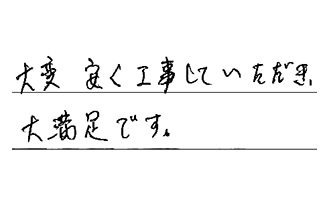 大変 安く工事していただき、
大満足です。